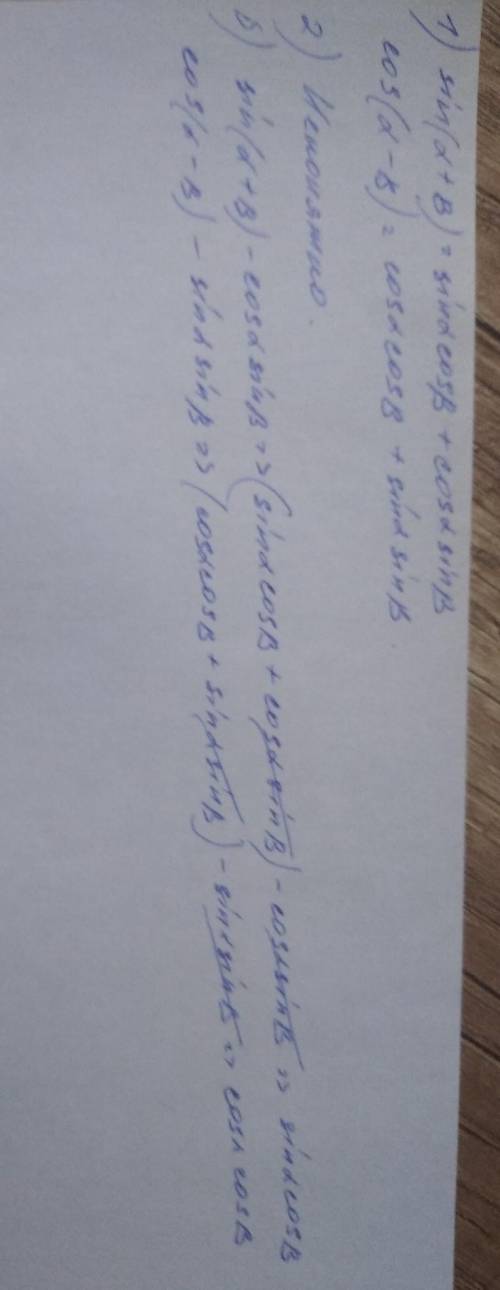 1) sin(α+B) = sinαcosB + cosαsinB
cos(α-B) = cosαcosB + sinαsinB.
2) Непонятно.
б) sin(α+B) - cosαsinB => (sinαcosB + cosαsinB) - cosαsinB => sinαcosB
cos(α-B) - sinαsinB => (cosαcosB + sinαsinB) - sinαsinB => cosαcosB